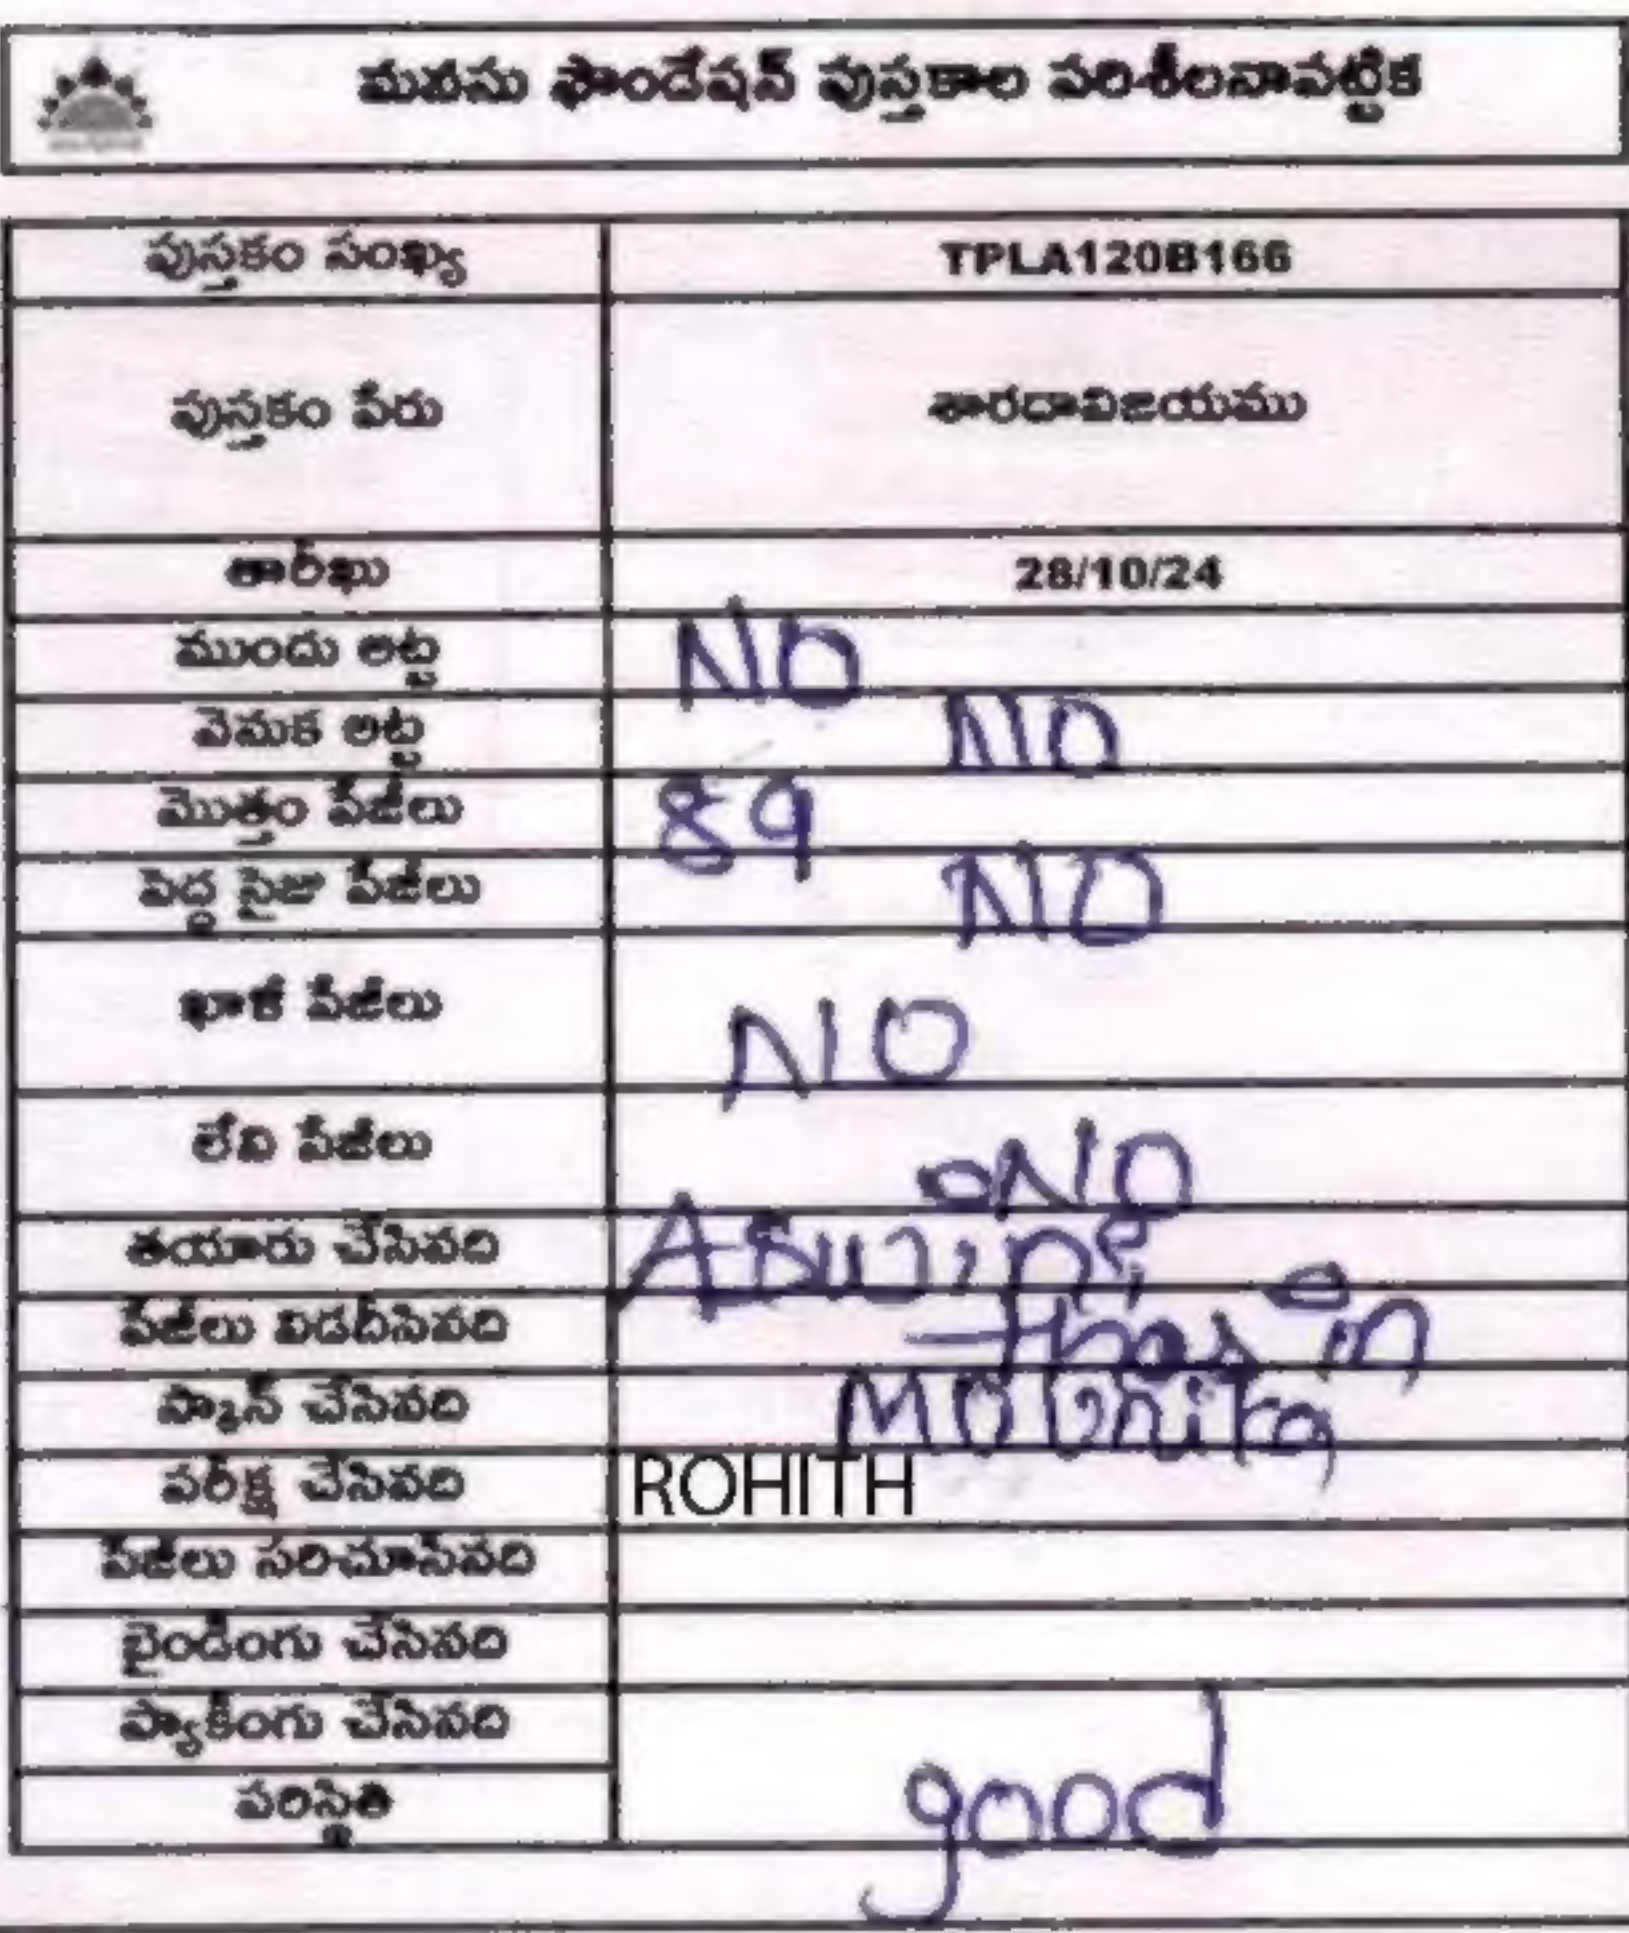 మనసు ఫౌండేషన్ పుస్తకాల పరిశీలనాపట్టిక
పుస్తకం సంఖ్య TPLA120B166
పుస్తకం పేరు శారదావిజయము
తారీఖు 28/10/24
ముందు అట్ట NO
వెనుక అట్ట NO
మొత్తం పేజీలు 89
పెద్ద సైజు పేజీలు NO
ఖాళీ పేజీలు NO
లేని పేజీలు NO
తయారు చేసినది Aswini
పేజీలు విడదీసినది
స్కాన్ చేసినది Mounika
పరీక్ష చేసినది ROHITH
పేజీలు సరిచూసినది
బైండింగు చేసినది
ప్యాకింగు చేసినది
పరిస్థితి good